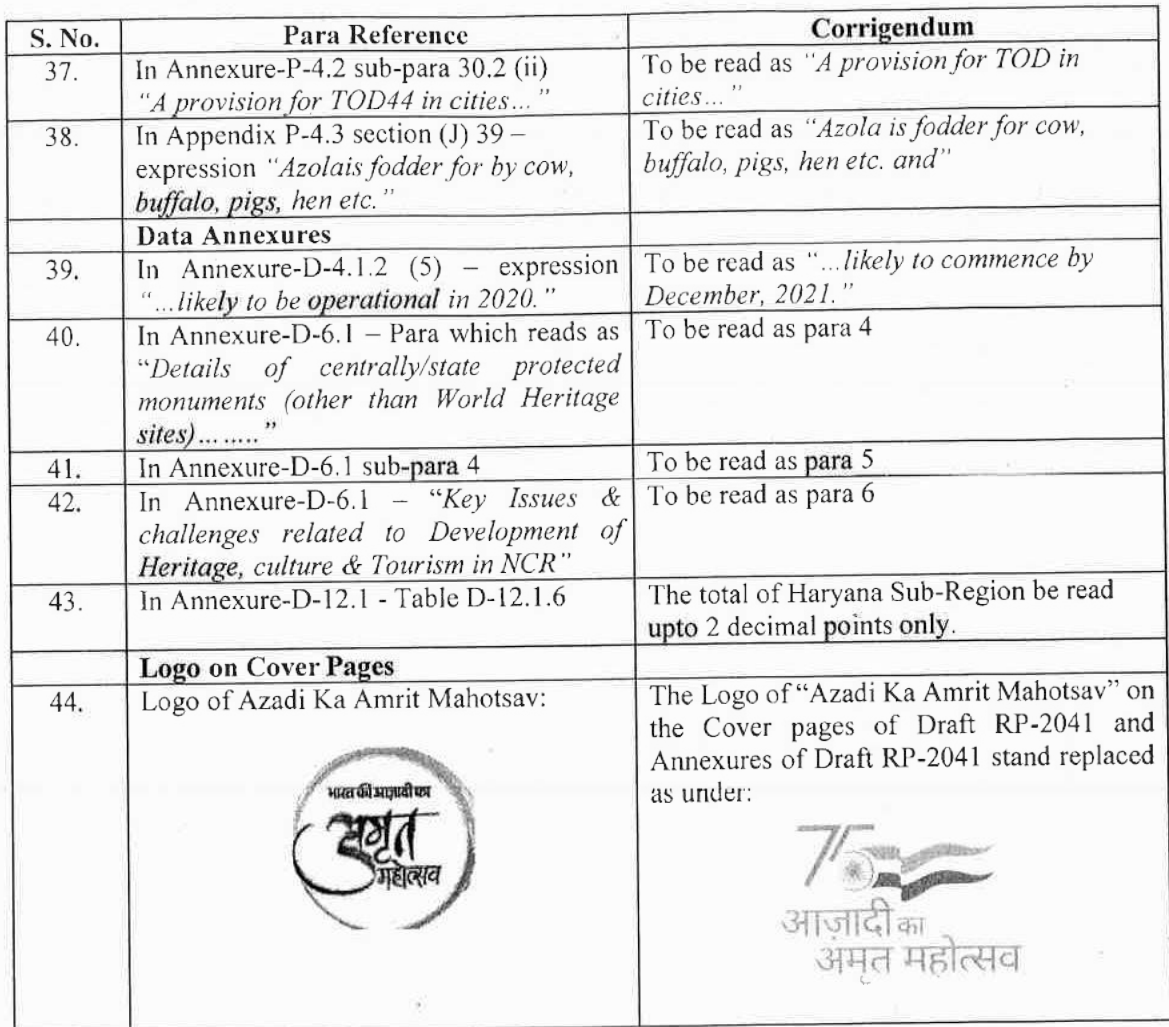 S. No. Para Reference Corrigendum
37. In Annexure-P-4.2 sub-para 30.2 (ii)
"A provision for TOD44 in cities... "
To be read as "A provision for TOD in
cities... "
38. In Appendix P-4.3 section (J) 39 –
expression "Azolais fodder for by cow,
buffalo, pigs, hen etc. "
To be read as "Azola is fodder for cow,
buffalo, pigs, hen etc. and"
Data Annexures
39. In Annexure-D-4.1.2 (5) – expression
"...likely to be operational in 2020. "
To be read as "...likely to commence by
December, 2021. "
40. In Annexure-D-6.1 – Para which reads as
"Details of centrally/state protected
monuments (other than World Heritage
sites)... ..... "
To be read as para 4
41. In Annexure-D-6.1 sub-para 4
To be read as para 5
42. In Annexure-D-6.1 – "Key Issues &
challenges related to Development of
Heritage, culture & Tourism in NCR"
To be read as para 6
43. In Annexure-D-12.1 - Table D-12.1.6
The total of Haryana Sub-Region be read
upto 2 decimal points only.
Logo on Cover Pages
44. Logo of Azadi Ka Amrit Mahotsav:
भारत की आज़ादी का
अमृत
महोत्सव
The Logo of "Azadi Ka Amrit Mahotsav" on
the Cover pages of Draft RP-2041 and
Annexures of Draft RP-2041 stand replaced
as under:
75
आज़ादी का
अमृत महोत्सव